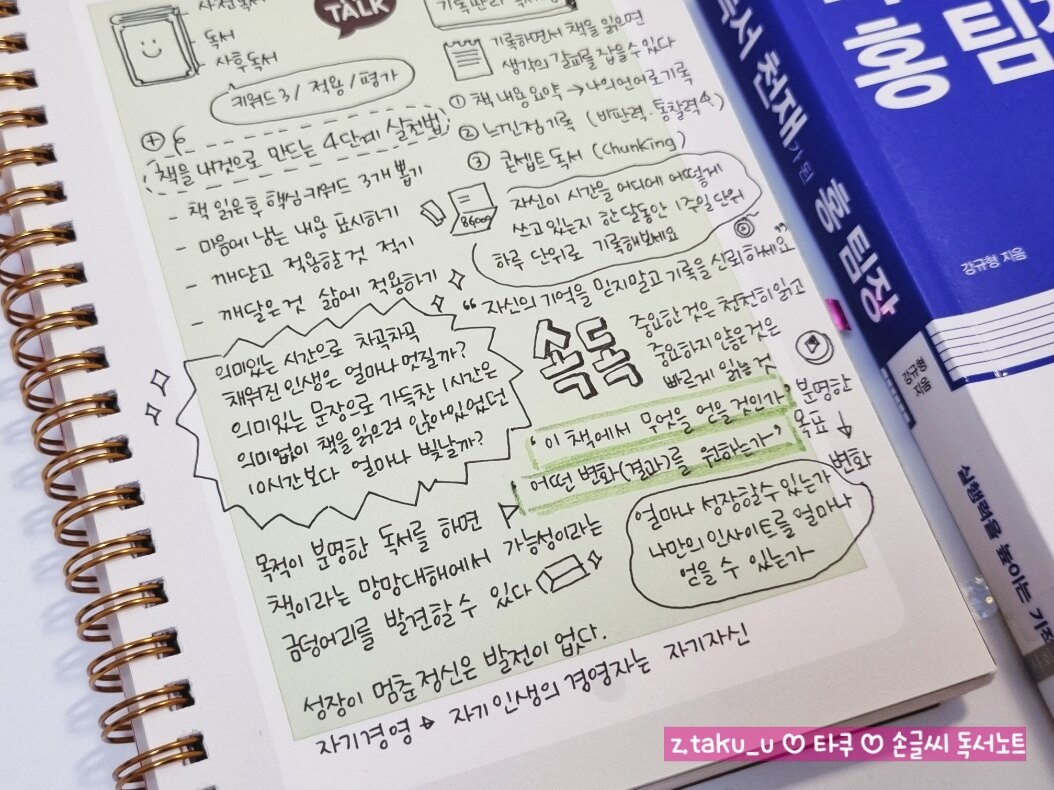 사전독서
독서
사후독서
키워드3 / 적용 / 평가
TALK
책을 내것으로 만드는 4단계 실천법
- 책 읽은 후 핵심키워드 3개 뽑기
- 마음에 남는 내용 표시하기
- 깨닫고 적용할 것 적기
- 깨달은 것 삶에 적용하기
기록하면서 책을 읽으면
생각의 갈피를 잡을 수 있다
① 책 내용 요약 → 나의 언어로 기록
② 느낀점 기록 (비판력. 통찰력↑)
③ 콘셉트 독서 (Chunking)
자신이 시간을 어디에 어떻게
쓰고 있는지 한 달동안 1주일 단위
하루 단위로 기록해보세요
"자신의 기억을 믿지말고 기록을 신뢰하세요"
의미있는 시간으로 차곡차곡
채워진 인생은 얼마나 멋질까?
의미있는 문장으로 가득한 1시간은
의미없이 책을 읽으려 앉아있었던
10시간보다 얼마나 빛날까?
속독
중요한 것은 천천히 읽고
중요하지 않은것은
빠르게 읽을 것
'이 책에서 무엇을 얻을 것인가
어떤 변화(결과)를 원하는가'
분명한
목표
변화
얼마나 성장할 수 있는가
나만의 인사이트를 얼마나
얻을 수 있는가
목적이 분명한 독서를 하면
책이라는 망망대해에서 가능성이라는
금덩어리를 발견할 수 있다
성장이 멈춘 정신은 발전이 없다.
자기경영 → 자기인생의 경영자는 자기자신
독서 천재가 된 홍 팀장
강규형
지음
실행력을 높이는
홍 팀
강규형 지음
z.taku_u ♡ 타쿠 ♡ 손글씨 독서노트